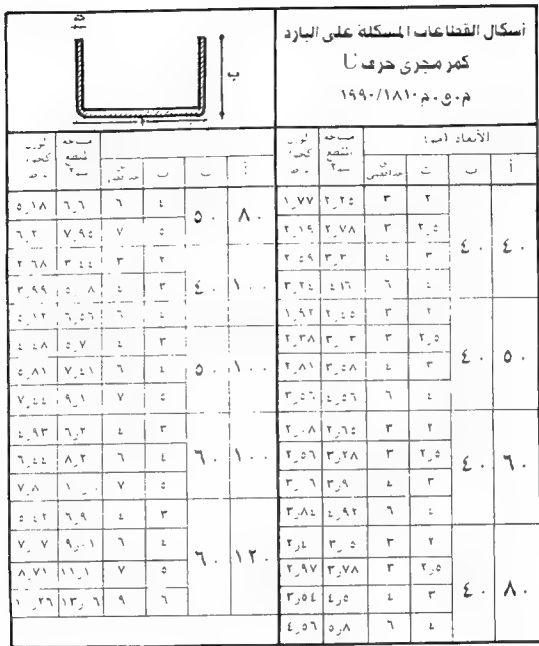 أشكال القطاعات المشكلة على البارد
كمر مجرى حرف U
م.ق.م ١٨١٠/١٩٩٠
الأبعاد (مم) مساحة المقطع سم٢ الوزن كجم/م.ط
أ ب ت حداقصى
٤٠ ٤٠ ٢ ٣ ٢٫٢٥ ١٫٧٧
٢٫٥ ٣ ٢٫٧٨ ٢٫١٩
٣ ٤ ٣٫٣ ٢٫٥٩
٤ ٦ ٤٫١٦ ٣٫٢٤
٥٠ ٤٠ ٢ ٣ ٢٫٤٥ ١٫٩٢
٢٫٥ ٣ ٣٫٠٣ ٢٫٣٨
٣ ٤ ٣٫٥٨ ٢٫٨١
٤ ٦ ٤٫٥٦ ٣٫٥٦
٦٠ ٤٠ ٢ ٣ ٢٫٦٥ ٢٫٠٨
٢٫٥ ٣ ٣٫٢٨ ٢٫٥٦
٣ ٤ ٣٫٩ ٣٫٠٦
٤ ٦ ٤٫٩٢ ٣٫٨٤
٨٠ ٤٠ ٢ ٣ ٣٫٠٥ ٢٫٤
٢٫٥ ٣ ٣٫٧٨ ٢٫٩٧
٣ ٤ ٤٫٥ ٣٫٥٤
٤ ٦ ٥٫٨ ٤٫٥٦
ب
أ ب ت حداقصى مساحة المقطع سم٢ الوزن كجم/م.ط
٨٠ ٥٠ ٤ ٦ ٦٫٦ ٥٫١٨
٥ ٧ ٧٫٩٥ ٦٫٢
١٠٠ ٤٠ ٢ ٣ ٣٫٤٤ ٢٫٦٨
٣ ٤ ٥٫٠٨ ٣٫٩٩
٤ ٦ ٦٫٥٦ ٥٫١٢
١٠٠ ٥٠ ٣ ٤ ٥٫٧ ٤٫٤٨
٤ ٦ ٧٫٤١ ٥٫٨١
٥ ٧ ٩٫١ ٧٫٤٤
١٠٠ ٦٠ ٣ ٤ ٦٫٢ ٤٫٩٣
٤ ٦ ٨٫٢ ٦٫٤٤
٥ ٧ ١٠٫٠ ٧٫٨
١٢٠ ٦٠ ٣ ٤ ٦٫٩ ٥٫٤٢
٤ ٦ ٩٫٠١ ٧٫٠٧
٥ ٧ ١١٫١ ٨٫٧١
٦ ٩ ١٣٫٠٦ ١٠٫٢٦